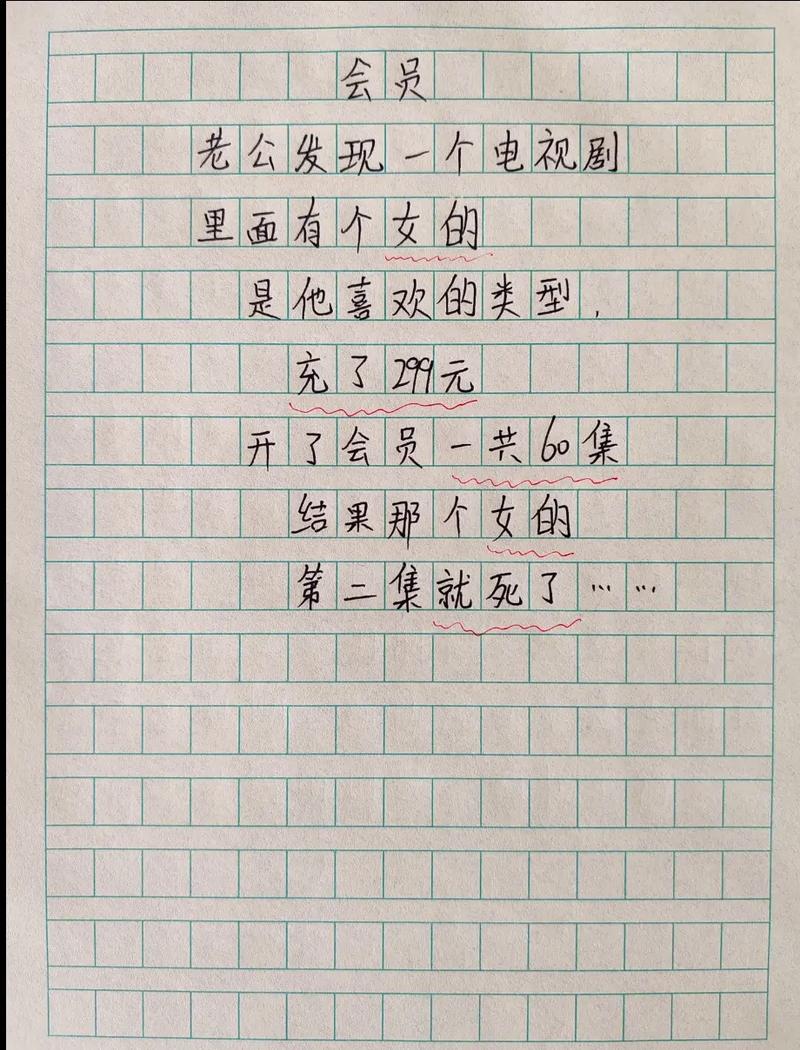 会员
老公发现一个电视剧
里面有个女的
是他喜欢的类型,
充了299元
开了会员一共60集
结果那个女的
第二集就死了……